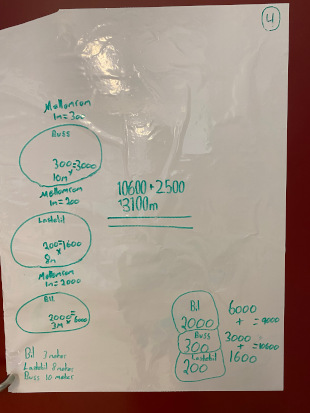 4
Mellomrom
1m = 300
Buss
300 = 3000
x
10m
Mellomrom
1m = 200
Lastebil
200 = 1600
x
8m
Mellomrom
1m = 2000
Bil
2000 =
x 6000
3m
10600 + 2500
13100m
Bil 3 meter
Lastebil 8 meter
Buss 10 meter
Bil
2000
Buss
300
Lastebil
200
6000
+ = 9000
3000
+ = 10600
1600